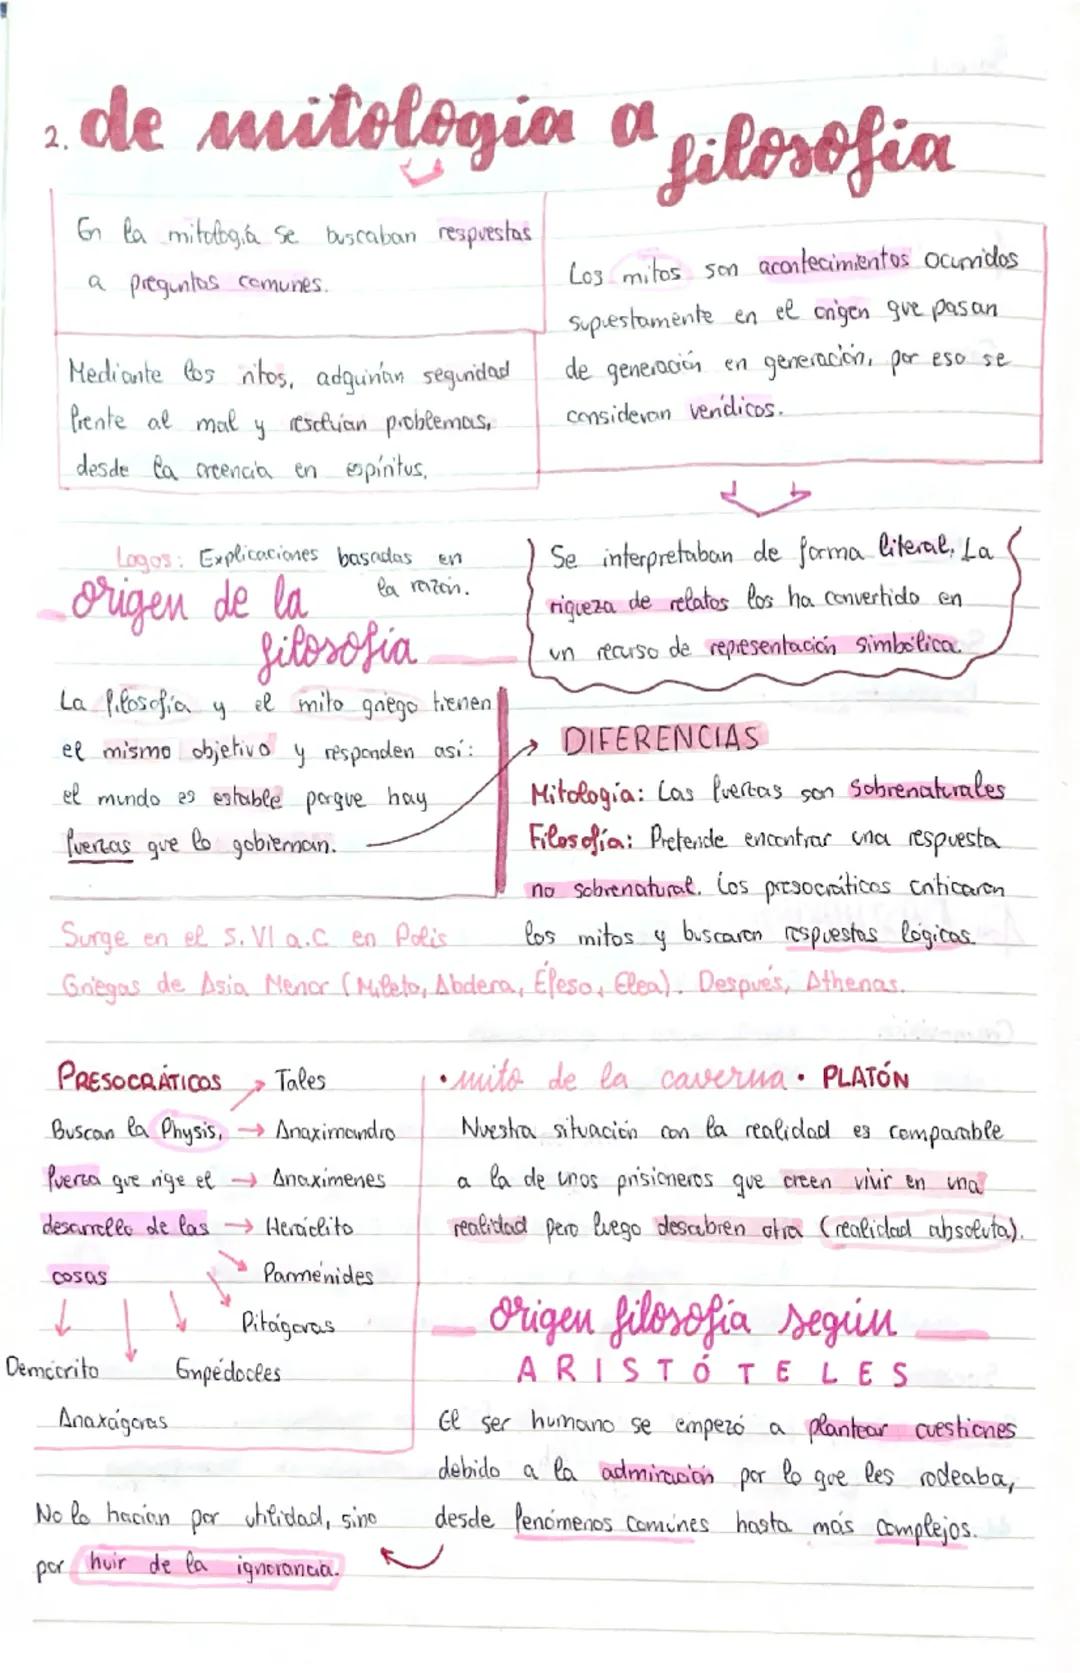 2. de mitologia a filosofia
En la mitología se buscaban respuestas
a preguntas comunes.
Mediante los ritos, adquirían seguridad
frente al mal y resolvían problemas,
desde la creencia en espíritus,
Los mitos son acontecimientos ocurridos
supuestamente en el origen que pasan
de generación en generación, por eso se
consideran verídicos.
Se interpretaban de forma literal. La
riqueza de relatos los ha convertido en
un recurso de representación simbólica.
Logos: Explicaciones basadas en
la razón.
origen de la
filosofía
La filosofía y el mito griego tienen
el mismo objetivo y responden así:
el mundo es estable porque hay
fuerzas que lo gobiernan.
DIFERENCIAS
Mitología: Las fuerzas son sobrenaturales
Filosofía: Pretende encontrar una respuesta
no sobrenatural. Los presocráticos criticaron
los mitos y buscaron respuestas lógicas.
Surge en el S. VI a.C en Polis
Griegas de Asia Menor (Mileto, Abdera, Éfeso, Elea). Después, Athenas.
PRESOCRÁTICOS
Buscan la Physis,
fuerza que rige el
desarrollo de las
cosas
Tales
Anaximandro
Anaxímenes
Heráclito
Parménides
Pitágoras
Enpédocles
Demócrito
Anaxágoras
· mito de la caverna · PLATÓN
Nuestra situación con la realidad es comparable
a la de unos prisioneros que creen vivir en una
realidad pero luego descubren otra (realidad absoluta).
origen filosofía según
ARISTÓTELES
El ser humano se empezó a plantear cuestiones
debido a la admiración por lo que les rodeaba,
desde fenómenos comunes hasta más complejos.
No lo hacían por utilidad, sino
por huir de la ignorancia.